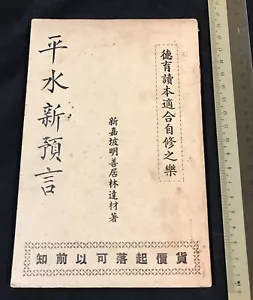 德育讀本適合自修之樂
新嘉坡明善居林達材著
平水新預言
貨價起落可以前知